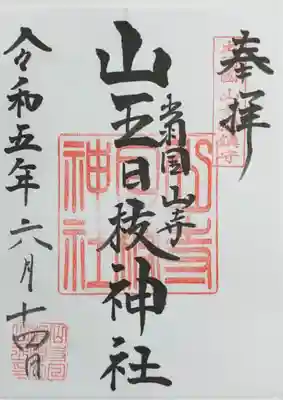 奉拝
国山寺
山王日枝神社
山寺
日枝
神社
令和五年六月十四日